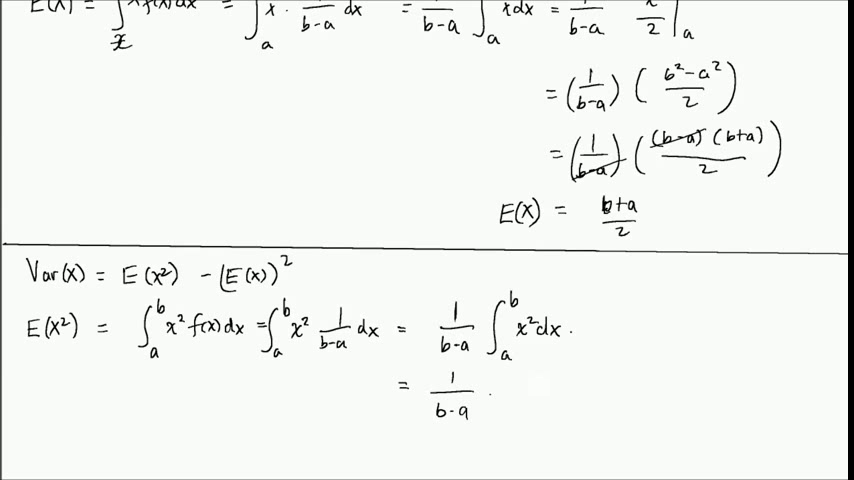 E(X) = ∫_x x f(x) dx = ∫_a x · 1/(b-a) dx = 1/(b-a) ∫_a x dx = 1/(b-a) x²/2 |_a
= (1/(b-a)) ((b²-a²)/2)
= (1/(b-a)) ((b-a)(b+a)/2)
E(X) = (b+a)/2
Var(X) = E(X²) - (E(X))²
E(X²) = ∫_a^b x² f(x) dx = ∫_a^b x² 1/(b-a) dx = 1/(b-a) ∫_a^b x² dx.
= 1/(b-a) .